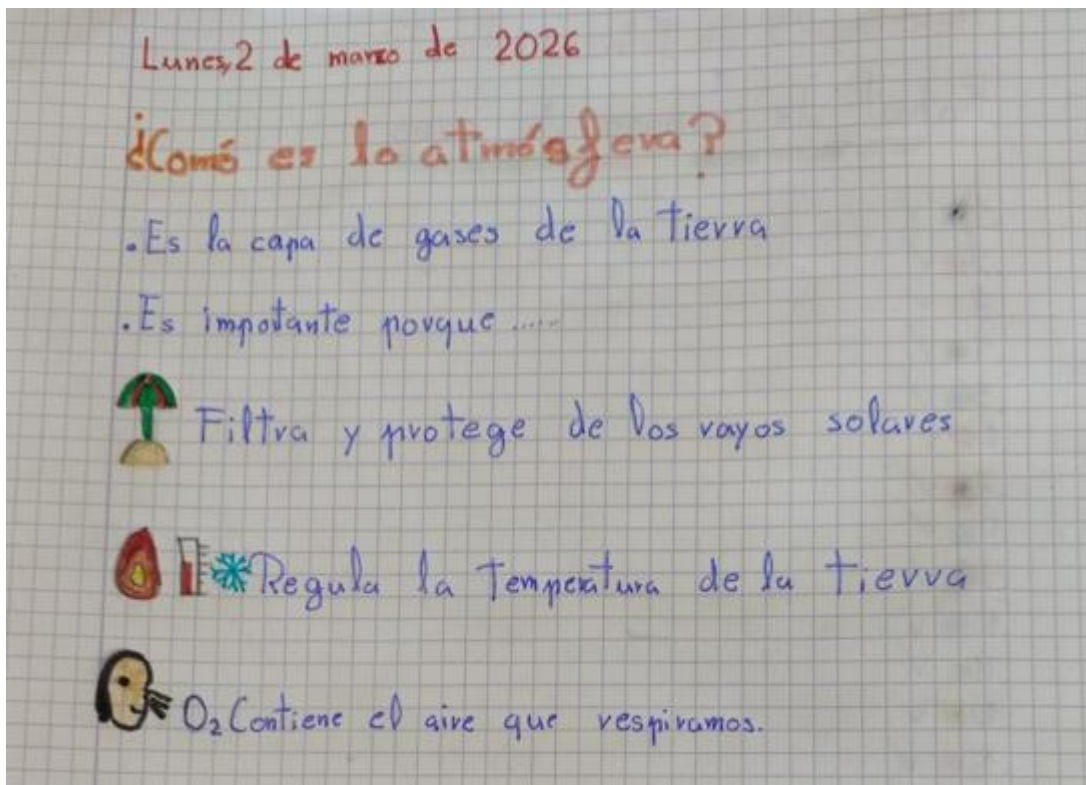 Lunes, 2 de marzo de 2026
¿Comó es la atmósfera?
. Es la capa de gases de la tierra
. Es impotante porque .....
Filtra y protege de los rayos solares
Regula la Temperatura de la tierra
O₂ Contiene el aire que respiramos.